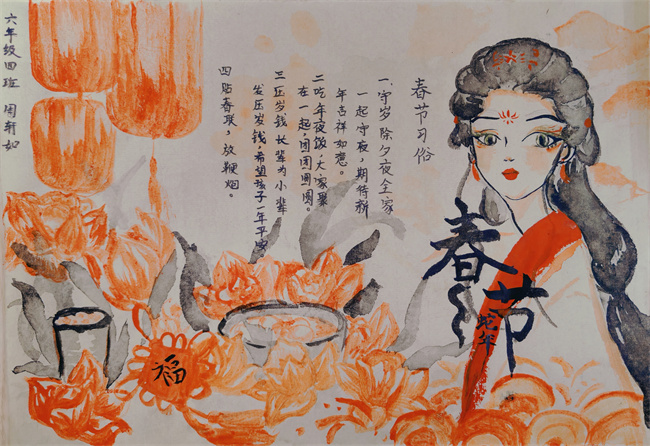 春节
蛇年
春节习俗
一.守岁除夕夜全家
一起守夜，期待新
年吉祥如意。
二吃年夜饭，大家聚
在一起，团团圆圆。
三压岁钱长辈为小辈
发压岁钱，希望孩子一年平安
四贴春联，放鞭烟。
福
六年级四班 周轩如